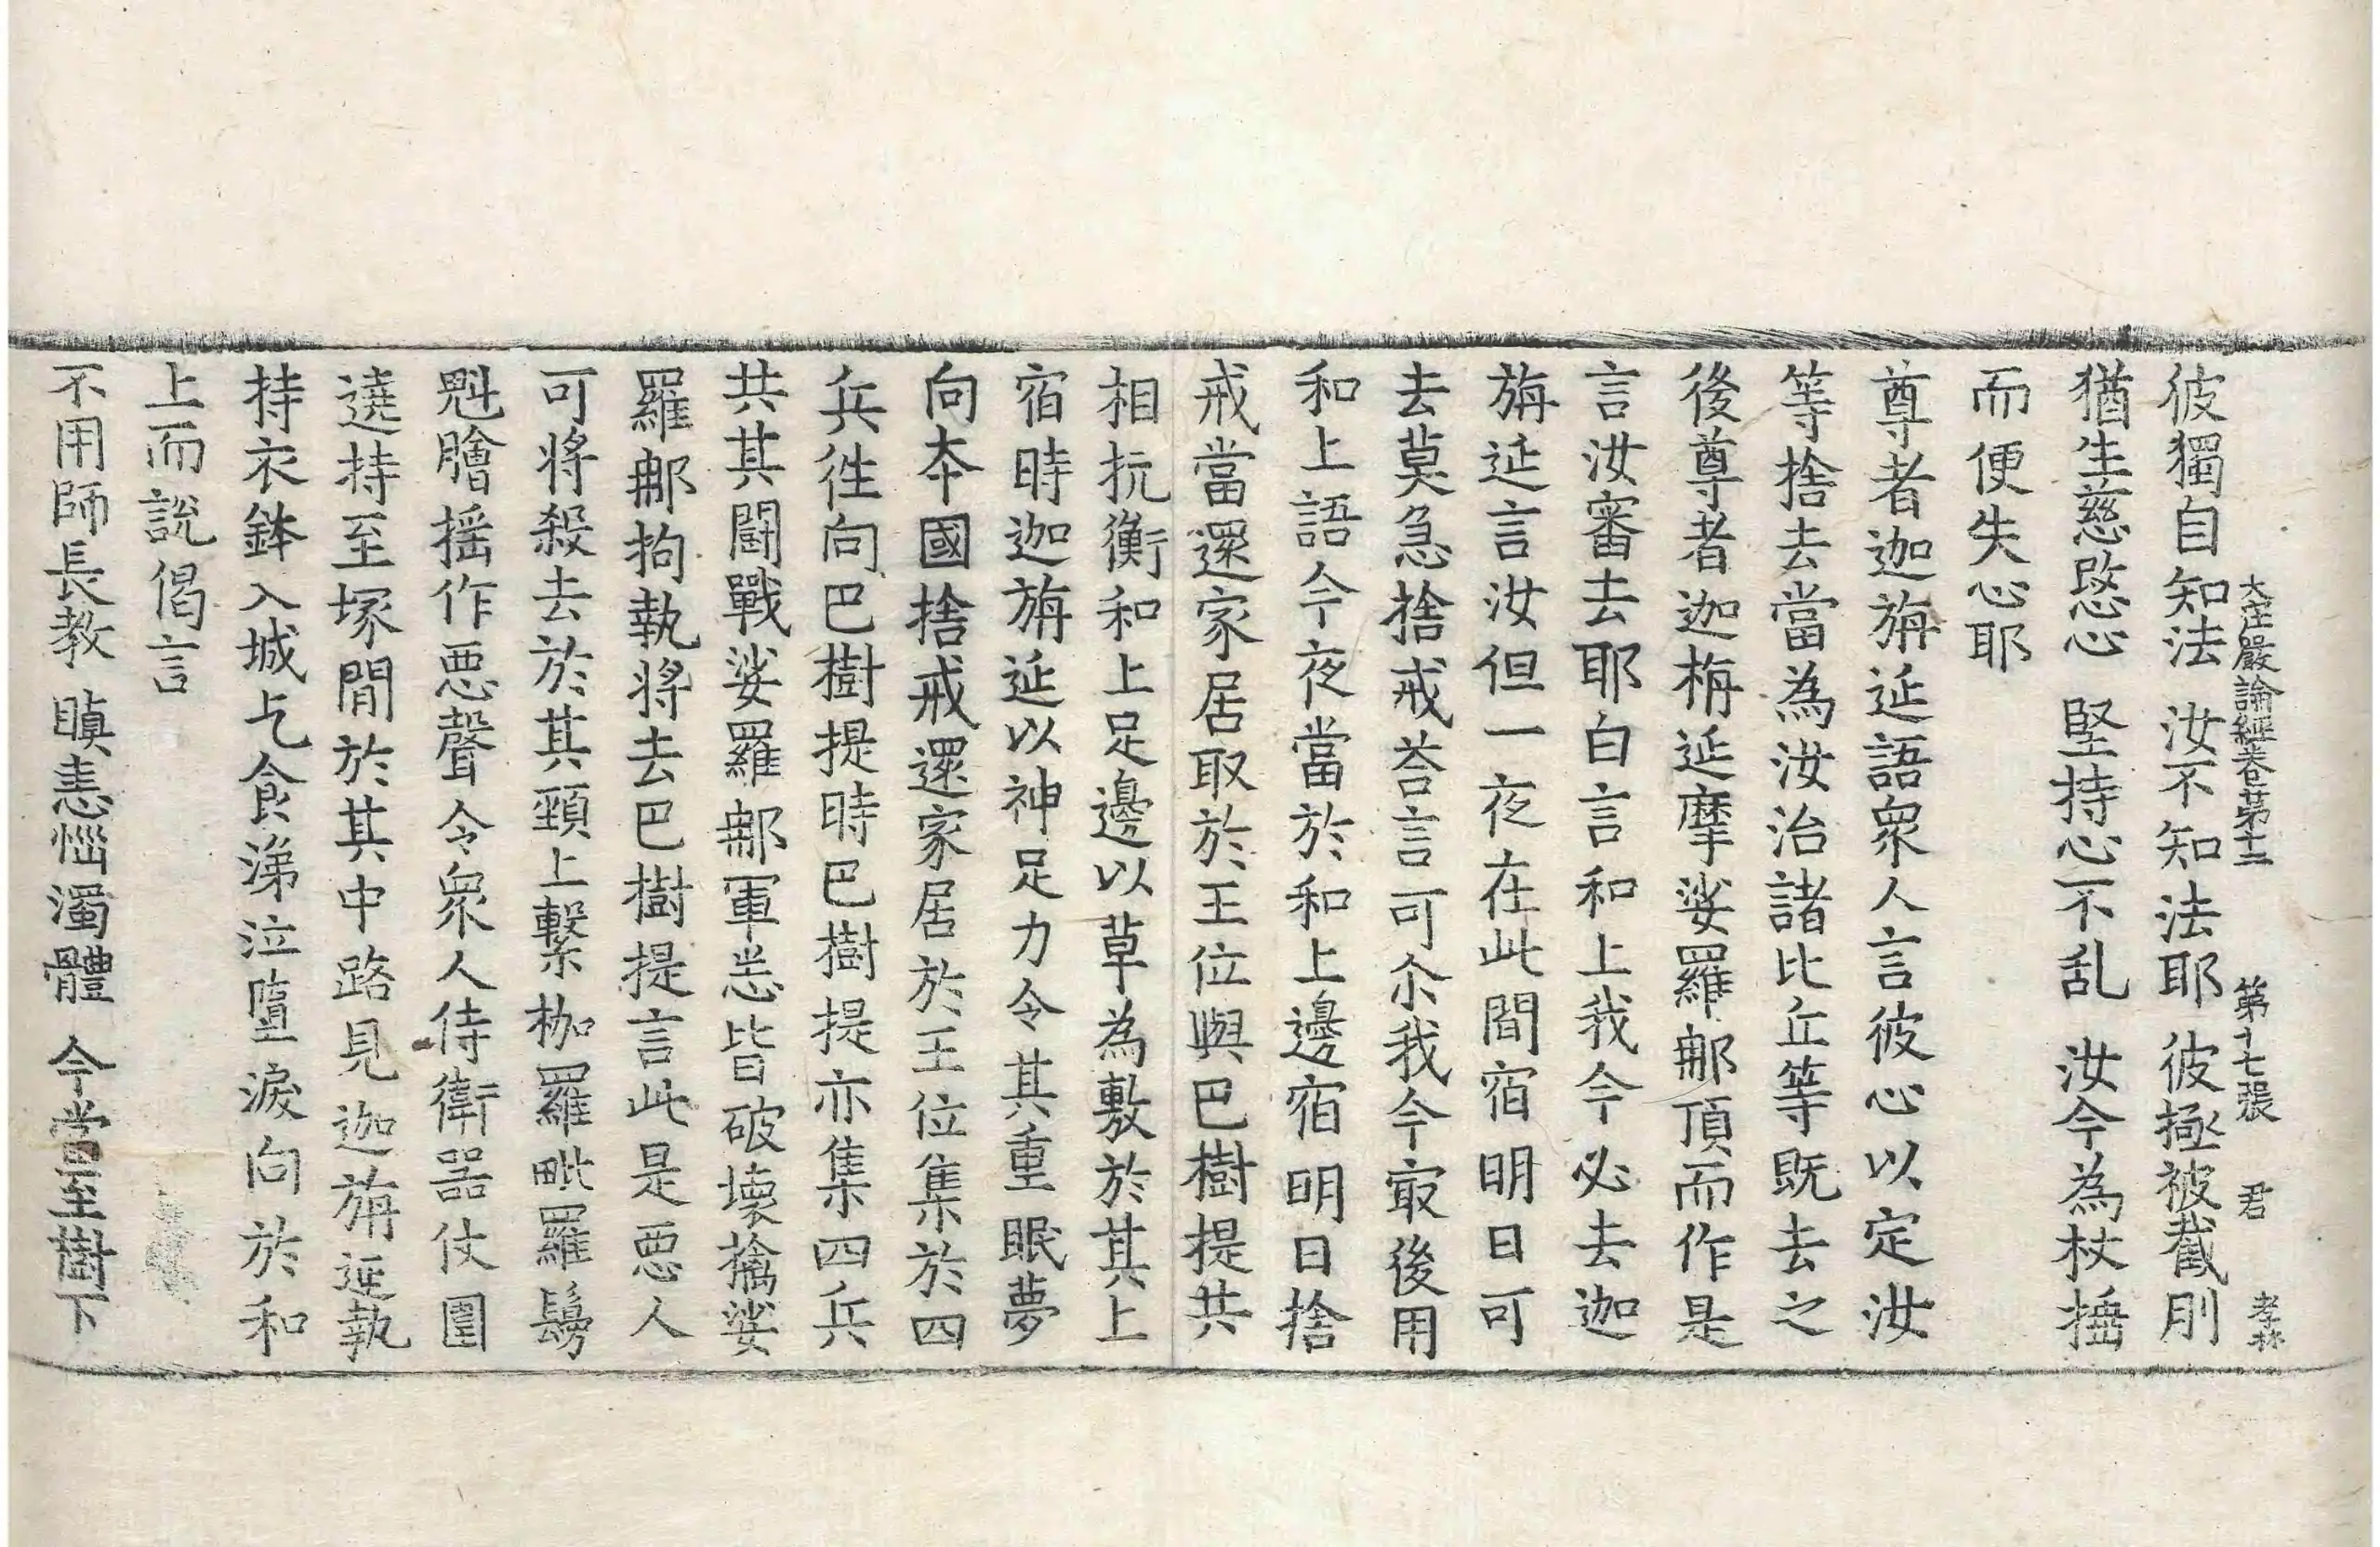 大庄嚴論經卷苐十二 第十七張 君 孝林
彼獨自知法 汝不知法耶 彼極被截刖
猶生慈愍心 堅持心不乱 汝今為杖捶
而便失心耶
尊者迦旃延語衆人言彼心以定汝
等捨去當為汝治諸比丘等既去之
後尊者迦栴延摩娑羅郍頂而作是
言汝審去耶白言和上我今必去迦
旃延言汝但一夜在此間宿明日可
去莫急捨戒荅言可尒我今㝡後用
和上語今夜當於和上邊宿明日捨
戒當還家居取於王位與巴樹提共
相抗衡和上足邊以草為敷於其上
宿時迦旃延以神足力令其重眠夢
向夲國捨戒還家居於王位集於四
兵徃向巴樹提時巴樹提亦集四兵
共其闘戰娑羅郍軍悉皆破壞擒娑
羅郍拘執將去巴樹提言此是惡人
可將殺去於其頸上繫枷羅毗羅鬘
魁膾揺作惡聲令衆人侍衛器仗圍
遶持至塚間於其中路見迦旃延執
持衣鉢入城乞食涕泣墮淚向於和
上而說偈言
不用師長教 瞋恚惱濁體 今當至樹下